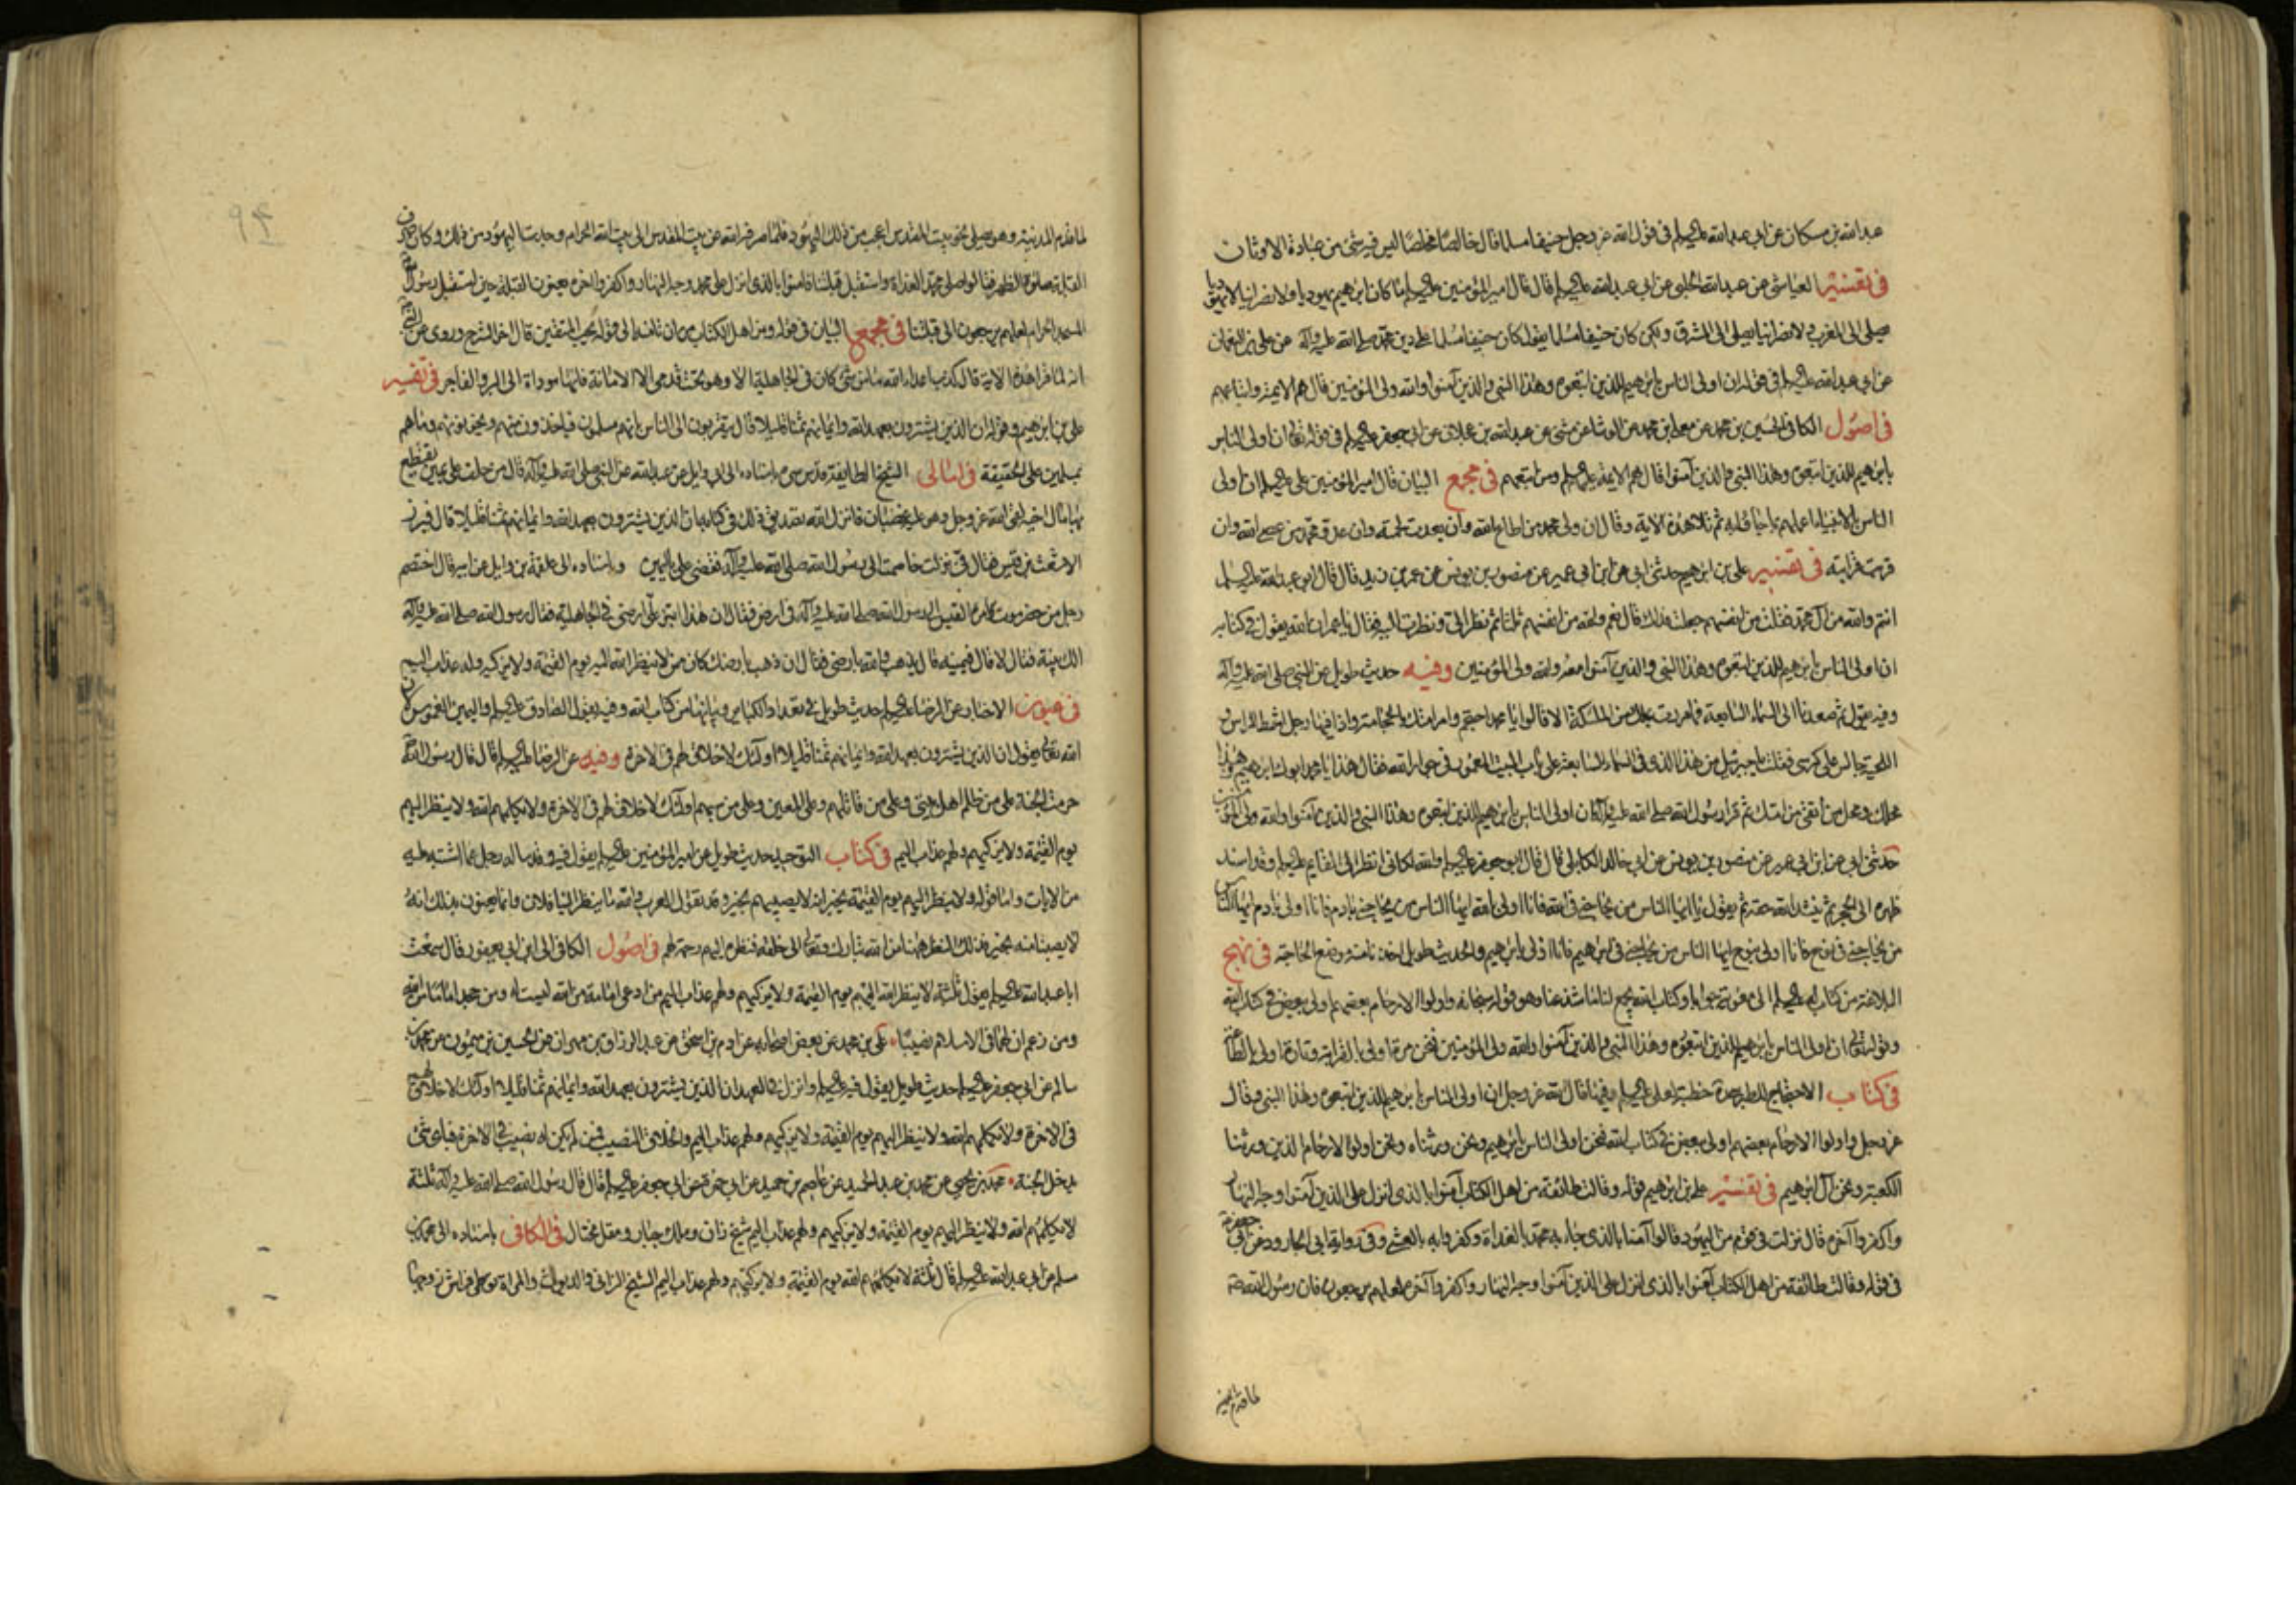 عبد الله بن مسكان عن ابى عبد الله عليه السلم فى قول الله عز وجل حنيفا مسلما قال خالصا مخلصا ليس فيه شئ من عبادة الاوثان
فى تفسير العياشى عن عبد الله الحلبى عن ابى عبد الله عليه السلم قال قال امير المؤمنين عليه السلم ما كان ابرهيم يهوديا ولا نصرانيا لا يهوديا
يصلى الى المغرب ولا نصرانيا يصلى الى المشرق ولكن كان حنيفا مسلما يقول كان حنيفا مسلما على دين محمد صلى الله عليه وآله عن على بن النعمان
عن ابى عبد الله عليه السلم فى قوله ان اولى الناس بابرهيم للذين اتبعوه وهذا النبى والذين آمنوا والله ولى المؤمنين قال هم الايمة واتباعهم
فى اصول الكافى الحسين بن محمد عن معلى بن محمد عن الوشا عن مثنى عن عبد الله بن عجلان عن ابى جعفر عليه السلم فى قوله تعالى ان اولى الناس
بابرهيم للذين اتبعوه وهذا النبى والذين آمنوا قال هم الايمة عليهم السلم ومن اتبعهم فى مجمع البيان قال امير المؤمنين على عليه السلم ان اولى
الناس بالانبياء اعملهم بما جاؤا به ثم تلا هذه الاية وقال ان ولى محمد من اطاع الله وان بعدت لحمته وان عدو محمد من عصى الله وان
قربت قرابته فى تفسير على بن ابرهيم حدثنى ابى عن ابن ابى عمير عن منصور بن يونس عن عمر بن يزيد قال قال ابو عبد الله عليه السلم
انتم والله من آل محمد فقلت من انفسهم جعلت فداك قال نعم والله من انفسهم ثلثا ثم نظر الى ونظرت اليه فقال يا عمر ان الله يقول فى كتابه
ان اولى الناس بابرهيم للذين اتبعوه وهذا النبى والذين آمنوا معه والله ولى المؤمنين وفيه حديث طويل عن النبى صلى الله عليه وآله
وفيه يقول ثم صعدنا الى السماء السابعة فما مررت بملك من الملئكة الا قالوا يا محمد احتجم وامر امتك بالحجامة واذا فيها رجل اشمط الراس و
اللحية جالس على كرسى فقلت يا جبرئيل من هذا الذى فى السماء السابعة على باب البيت المعمور فى جوار الله فقال هذا يا محمد ابوك ابرهيم هذا
محلك ومحل من اتقى من امتك ثم قرا رسول الله صلى الله عليه وآله ان اولى الناس بابرهيم للذين اتبعوه وهذا النبى والذين آمنوا والله ولى المؤمنين
حدثنى ابى عن ابن ابى عمير عن منصور بن يونس عن ابى خالد الكابلى قال قال ابو جعفر عليه السلم والله لكانى انظر الى القايم عليه السلم وقد اسند
ظهره الى الحجر ثم ينشد الله حقه ثم يقول يا ايها الناس من يحاجنى فى الله فانا اولى بالله ايها الناس من يحاجنى بادم فانا اولى بادم ايها الناس
من يحاجنى فى نوح فانا اولى بنوح ايها الناس من يحاجنى فى ابرهيم فانا اولى بابرهيم والحديث طويل اخذنا منه موضع الحاجة فى نهج
البلاغة من كتاب له عليه السلم الى معوية جوابا وكتاب الله يجمع لنا ما شذ عنا وهو قوله سبحانه واولوا الارحام بعضهم اولى ببعض فى كتاب الله
وقوله تعالى ان اولى الناس بابرهيم للذين اتبعوه وهذا النبى والذين آمنوا والله ولى المؤمنين فنحن مرة اولى بالقرابة وتارة اولى بالطاعة
فى كتاب الاحتجاج للطبرسى خطبة لعلى عليه السلم وفيها قال الله عز وجل ان اولى الناس بابرهيم للذين اتبعوه وهذا النبى وقال
عز وجل واولوا الارحام بعضهم اولى ببعض فى كتاب الله فنحن اولى الناس بابرهيم ونحن ورثناه ونحن اولوا الارحام الذين ورثنا
الكعبة ونحن آل ابرهيم فى تفسير على بن ابرهيم قوله وقالت طائفة من اهل الكتاب آمنوا بالذى انزل على الذين آمنوا وجه النهار
واكفروا آخره قال نزلت فى قوم من اليهود قالوا آمنا بالذى جاء به محمد بالغداة وكفروا به بالعشى وفى رواية ابى الجارود عن ابى جعفر
فى قوله وقالت طائفة من اهل الكتاب آمنوا بالذى انزل على الذين آمنوا وجه النهار واكفروا آخره لعلهم يرجعون فان رسول الله
لما قدم المدينة
لما قدم المدينة وهو يصلى نحو بيت المقدس اعجب من ذلك اليهود فلما صرفه الله عن بيت المقدس الى بيت الله الحرام وجدت اليهود من ذلك وكان صرف
القبلة صلوة الظهر فقالوا صلى محمد الغداة واستقبل قبلتنا فامنوا بالذى انزل على محمد وجه النهار واكفروا اخره يعنون القبلة حين استقبل رسول الله
المسجد الحرام لعلهم يرجعون الى قبلتنا فى مجمع البيان فى قوله ومن اهل الكتاب من ان تامنه الى قوله يحب المتقين قال اخر الشرح وروى عن النبى
انه لما قرا هذه الاية قال كذب اعداء الله ما من شئ كان فى الجاهلية الا وهو تحت قدمى الا الامانة فانها موداة الى البر والفاجر فى تفسير
على بن ابرهيم وقوله ان الذين يشترون بعهد الله وايمانهم ثمنا قليلا قال يتقربون الى الناس بانهم مسلمون فياخذون منهم ويخونونهم وما هم
بمسلمين على الحقيقة فى امالى الشيخ الطايفة قدس سره باسناده الى ابى وايل عن عبد الله عن النبى صلى الله عليه وآله قال من حلف على يمين يقتطع
بها مال اخيه لقى الله عز وجل وهو عليه غضبان فانزل الله تصديق ذلك فى كتابه ان الذين يشترون بعهد الله وايمانهم ثمنا قليلا قال فبرز
الاشعث بن قيس فقال فى نزلت خاصمت الى رسول الله صلى الله عليه وآله فقضى على باليمين وباسناده الى علقمة بن وايل عن ابيه قال اختصم
رجل من حضرموت وامرء القيس الى رسول الله صلى الله عليه وآله فى ارض فقال ان هذا ابتز على ارضى فى الجاهلية فقال رسول الله صلى الله عليه وآله
الك بينة فقال لا قال فيمينه قال يذهب والله بارضى فقال ان ذهب بارضك كان ممن لا ينظر الله اليه يوم القيمة ولا يزكيه وله عذاب اليم
فى عيون الاخبار عن الرضا عليه السلم حديث طويل فى تعداد الكباير وبيانها من كتاب الله وفيه يقول الصادق عليه السلم واليمين الغموس لان
الله تعالى يقول ان الذين يشترون بعهد الله وايمانهم ثمنا قليلا اولئك لا خلاق لهم فى الاخرة وفيه عن الرضا عليه السلم قال قال رسول الله
حرمت الجنة على من ظلم اهل بيتى وعلى من قاتلهم وعلى المعين وعلى من سبهم اولئك لا خلاق لهم فى الاخرة ولا يكلمهم الله ولا ينظر اليهم
يوم القيمة ولا يزكيهم ولهم عذاب اليم فى كتاب التوحيد حديث طويل عن امير المؤمنين عليه السلم يقول فيه وقد ساله رجل عما اشتبه عليه
من الايات واما قوله ولا ينظر اليهم يوم القيمة يخبر انه لا يصيبهم بخير وقد تقول العرب والله ما ينظر الينا فلان وانما يعنون بذلك انه
لا يصيبنا منه بخير فذلك النظر ههنا من الله تبارك وتعالى الى خلقه فنظره اليهم رحمة لهم فى اصول الكافى الى ابن ابى يعفور قال سمعت
ابا عبد الله عليه السلم يقول ثلثة لا ينظر الله اليهم يوم القيمة ولا يزكيهم ولهم عذاب اليم من ادعى امامة من الله ليست له ومن جحد اماما من الله
ومن زعم ان لهما فى الاسلام نصيبا على بن محمد عن بعض اصحابه عن ادم بن اسحق عن عبد الرزاق بن مهران عن الحسين بن ميمون عن محمد بن
سالم عن ابى جعفر عليه السلم حديث طويل يقول فيه عليه السلم وانزل فى العهد ان الذين يشترون بعهد الله وايمانهم ثمنا قليلا اولئك لا خلاق لهم
فى الاخرة ولا يكلمهم الله ولا ينظر اليهم يوم القيمة ولا يزكيهم ولهم عذاب اليم والخلاق النصيب فمن لم يكن له نصيب فى الاخرة فباى شئ
يدخل الجنة محمد بن يحيى عن محمد بن عبد الحميد عن عاصم بن حميد عن ابى حمزة عن ابى جعفر عليه السلم قال قال رسول الله صلى الله عليه وآله ثلثة
لا يكلمهم الله ولا ينظر اليهم يوم القيمة ولا يزكيهم ولهم عذاب اليم شيخ زان وملك جبار ومقل مختال فى الكافى باسناده الى محمد بن
مسلم عن ابى عبد الله عليه السلم قال ثلثة لا يكلمهم الله يوم القيمة ولا يزكيهم ولهم عذاب اليم الشيخ الزانى والديوث والمراة توطى فراش زوجها